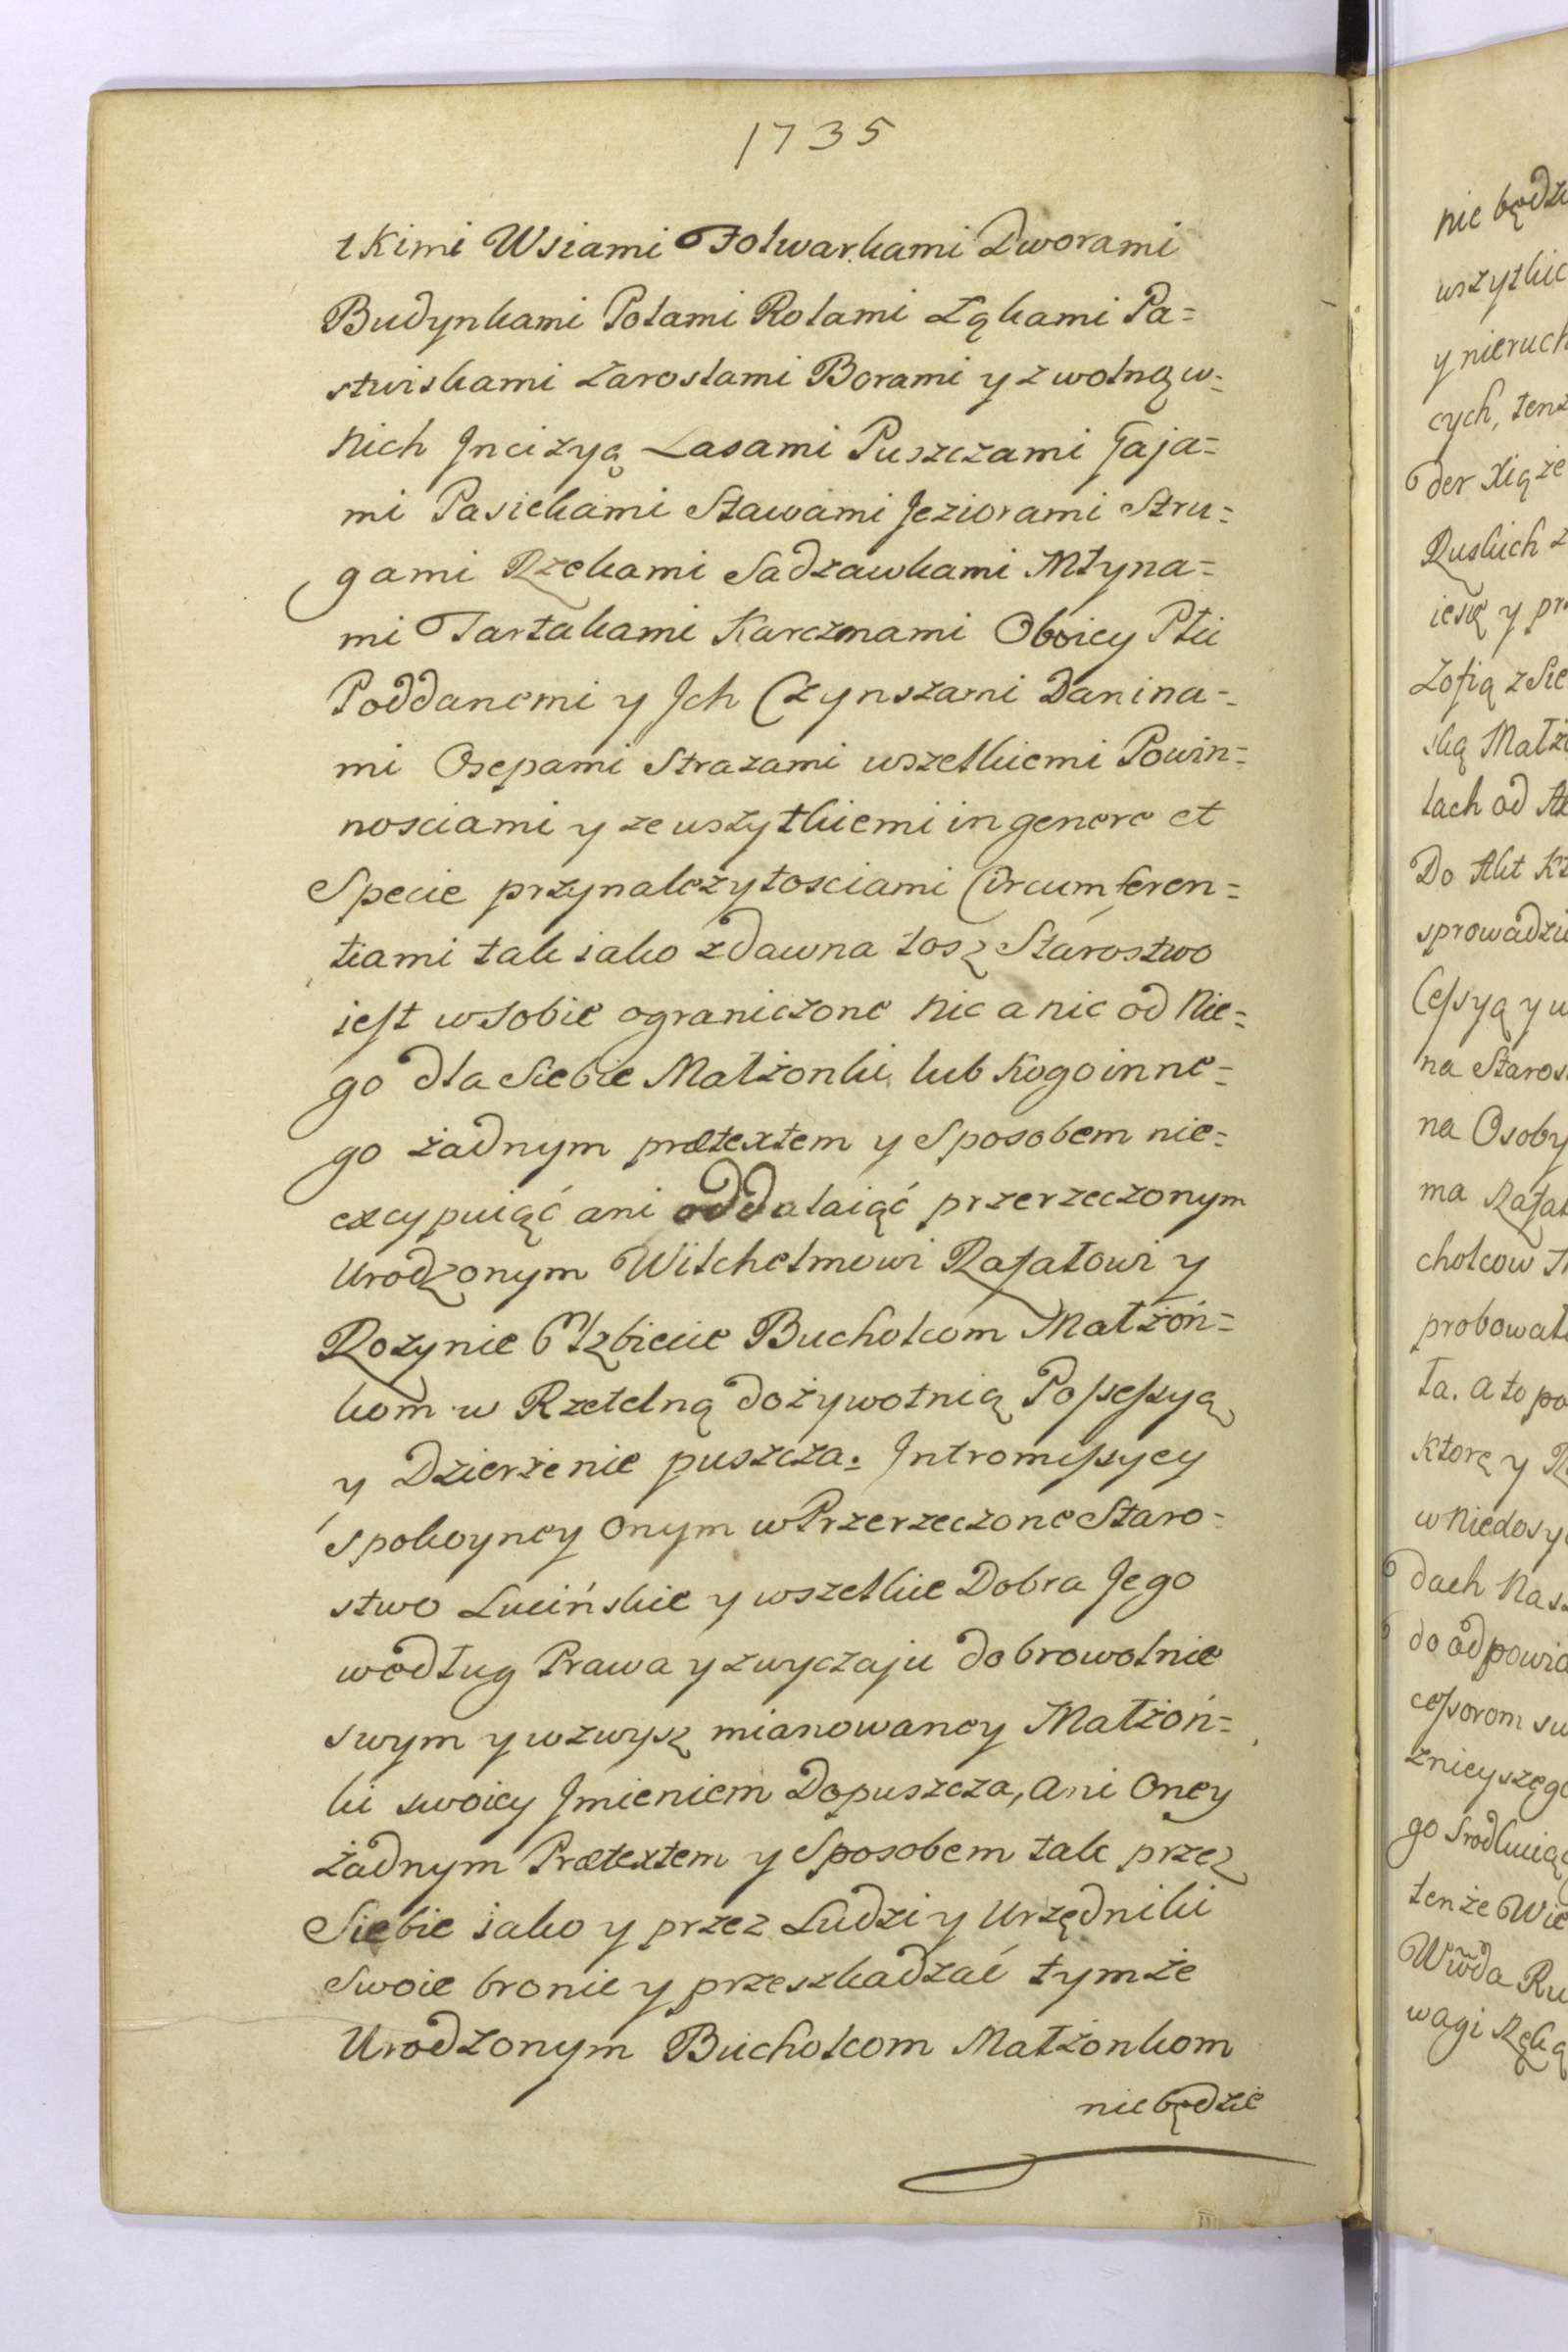 1735
tkimi Wsiami Folwarkami Dworami
Budynkami Polami Rolami Łąkami Pa=
stwiskami Zaroslami Borami y z wolną w=
nich Jncizyą Lasami Puszczami Gaja=
mi Pasiekami Stawami Jeziorami Stru=
gami Rzekami Sadzawkami Młyna=
mi Tartakami Karczmami Oboiey Ptci
Poddanemi y Jch Czynszami Danina=
mi Osepami Strazami wszelkiemi Powin=
nosciami y ze wszytkiemi in genere et
Specie przynalezytosciami Circumferen=
tiami tak iako zdawna tosz Starostwo
iest w sobie ograniczone nic a nic od Nie=
go dla Siebie Małżonki lub Kogo inne=
go żadnym prætextem y Sposobem nie=
excypuiąć ani oddalaiąć przerzeczonym
Urodzonym Wilchelmowi Rafałowi y
Rozynie Elzbiecie Bucholcom Małżoń=
kom w Rzetelną dożywotnią Possessyą
y Dzierżenie puszcza. Jntromissyey
spokoyney Onym w Przerzeczone Staro=
stwo Lucińskie y wszelkie Dobra Jego
według Prawa y zwyczaju dobrowolnie
swym y wzwysz mianowaney Małżoń=
ki swoiey Jmieniem Dopuszcza, ani Oney
żadnym Prætextem y Sposobem tak przez
Siebie iako y przez Ludzi y Urzędniki
Swoie bronic y przeszkadzać tymże
Urodzonym Bucholcom Małżonkom
nie będzie
nie będzie
wszytkic
y nieruch
cych, tenż
der Xiąże
Ruskich z
iesię y pr
Zofią z Sie
ską Małżo
tach od Ak
Do Akt Kr
sprowadzi
Cessyą y w
na Staros
na Osoby
ma Rafał
cholcow
probował
ła. a to po
Ktorę y
w niedosy
dach Nas
do odpowia
cessorom sw
znieyszego
go
tenże Wie
Wwda Ru
wagi Ręką